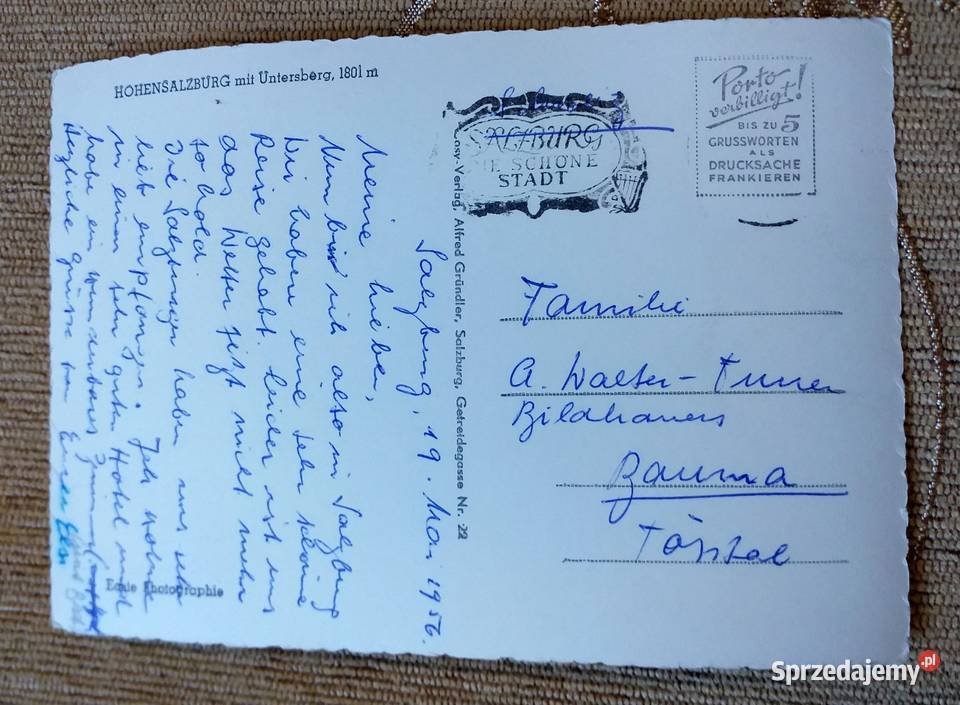 HOHENSALZBURG mit Untersberg, 1801 m
SALZBURG
DIE SCHÖNE
STADT
Porto
verbilligt!
BIS ZU 5
GRUSSWORTEN
ALS
DRUCKSACHE
FRANKIEREN
Cosy-Verlag, Alfred Gründler, Salzburg, Getreidegasse Nr. 22
Salzburg, 19. Mai 1956.
Meine Lieben,
Nun bin ich also in Salzburg
Wir haben eine sehr schöne
Reise gehabt. Leider ist uns
das Wetter jetzt nicht mehr
so hold.
Die Salzburger haben uns sehr
lieb empfangen. Ich wohne
in einem sehr guten Hotel und
habe ein wunderbares Zimmer
Herzliche Grüsse von Eurer
Echte Photographie
Familie
A. Walter-Furrer
Bildhauers
Bauma
Tösstal
Sprzedajemy.pl